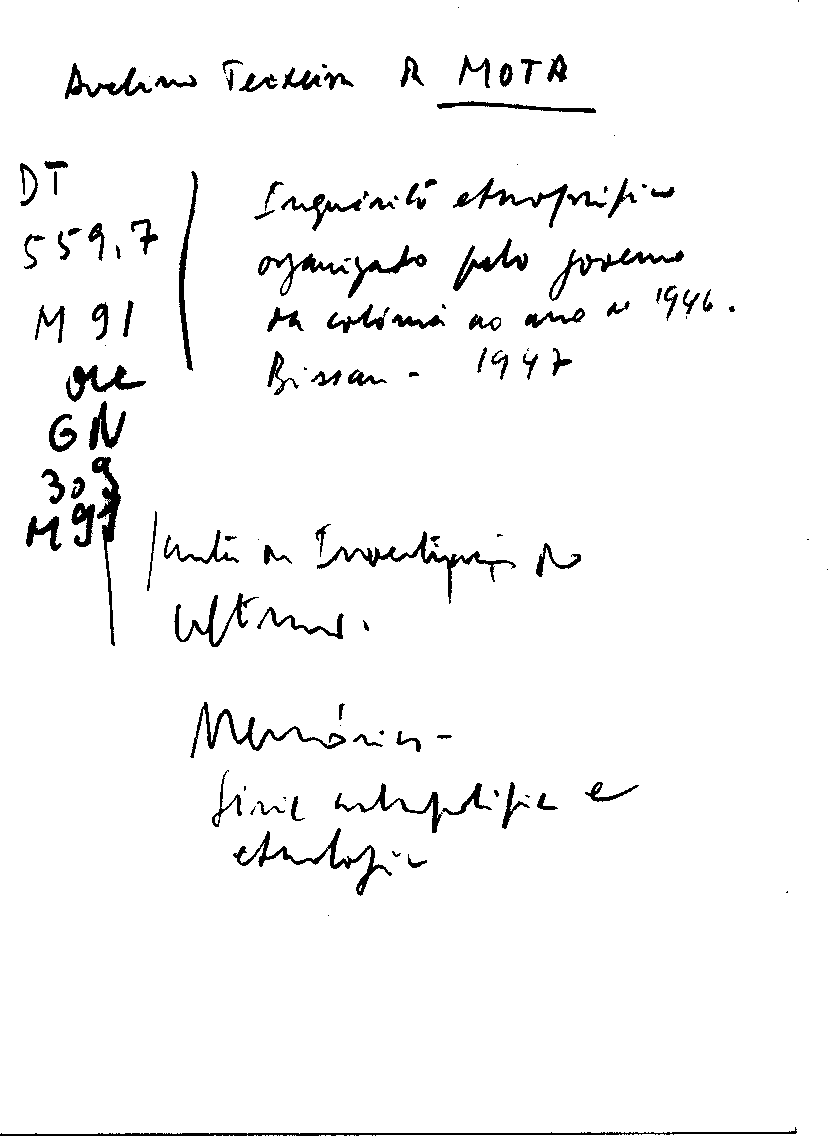 Avelino Teixeira da MOTA
DT
559.7
M 91
ou
GN
309
M91
Inquérito etnográfico
organizado pelo governo
da colónia no ano de 1946.
Bissau - 1947
Junta de Investigações do
Ultramar.
Memórias -
Série antropológica e
etnológica